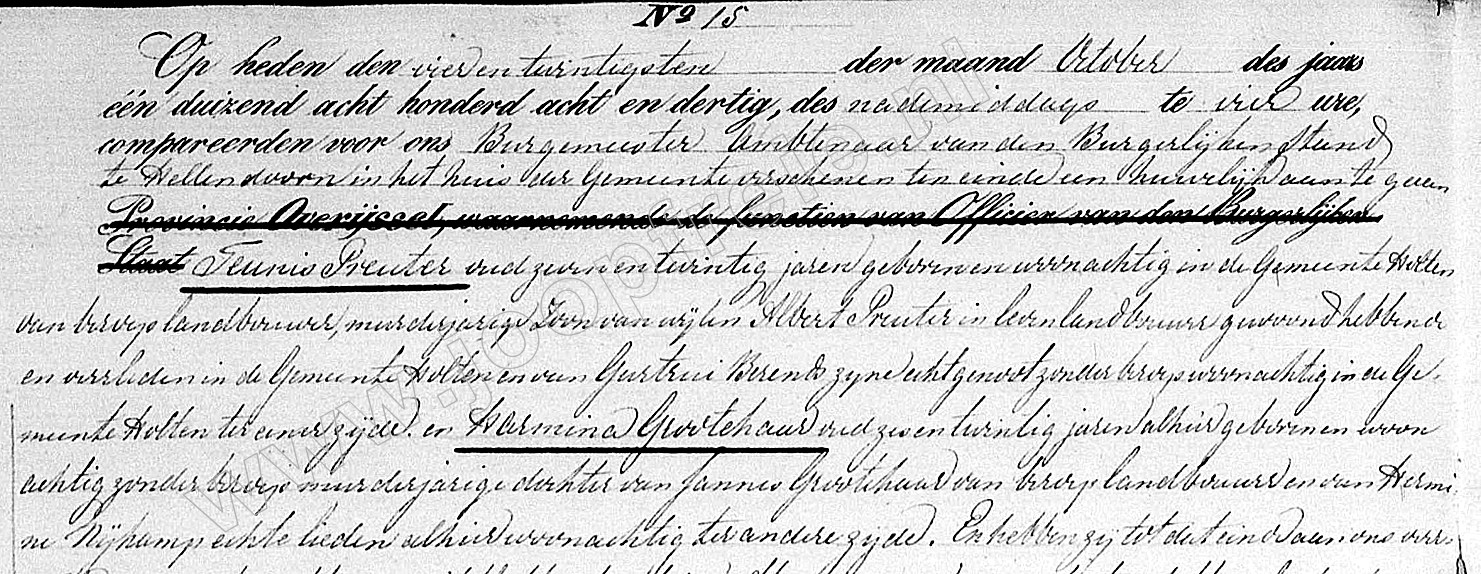 No 15
Op heden den vier en twintigsten der maand October des jaars
één duizend acht honderd acht en dertig, des nademiddags te vier ure,
compareerden voor ons Burgemeester Ambtenaar van den Burgerlijken Stand
te Hellendoorn in het huis der Gemeente verschenen ten einde een huwelijk aan te gaan
Provincie Overijssel, waarnemende de functien van Officier van den Burgerlijken
Staat Teunis Preuter oud zeven en twintig jaren geboren en woonachtig in de Gemeente Holten
van beroep landbouwer, meerderjarige Zoon van wijlen Albert Preuter in leven landbouwer gewoond hebbende
en overleden in de Gemeente Holten en van Gertrui Berends zyne echtgenoot zonder beroep woonachtig in de Ge-
meente Holten ter eener zyde. en Harmina Grootehaar oud zes en twintig jaren alhier geboren en woon
achtig zonder beroep meerderjarige dochter van Jannes Grootehaar van beroep landbouwer en van Hermi-
ne Nijkamp echte lieden alhier woonachtig ter andere zyde. En hebben zy tot dat eind aan ons over-
www.jooptrefo.nl